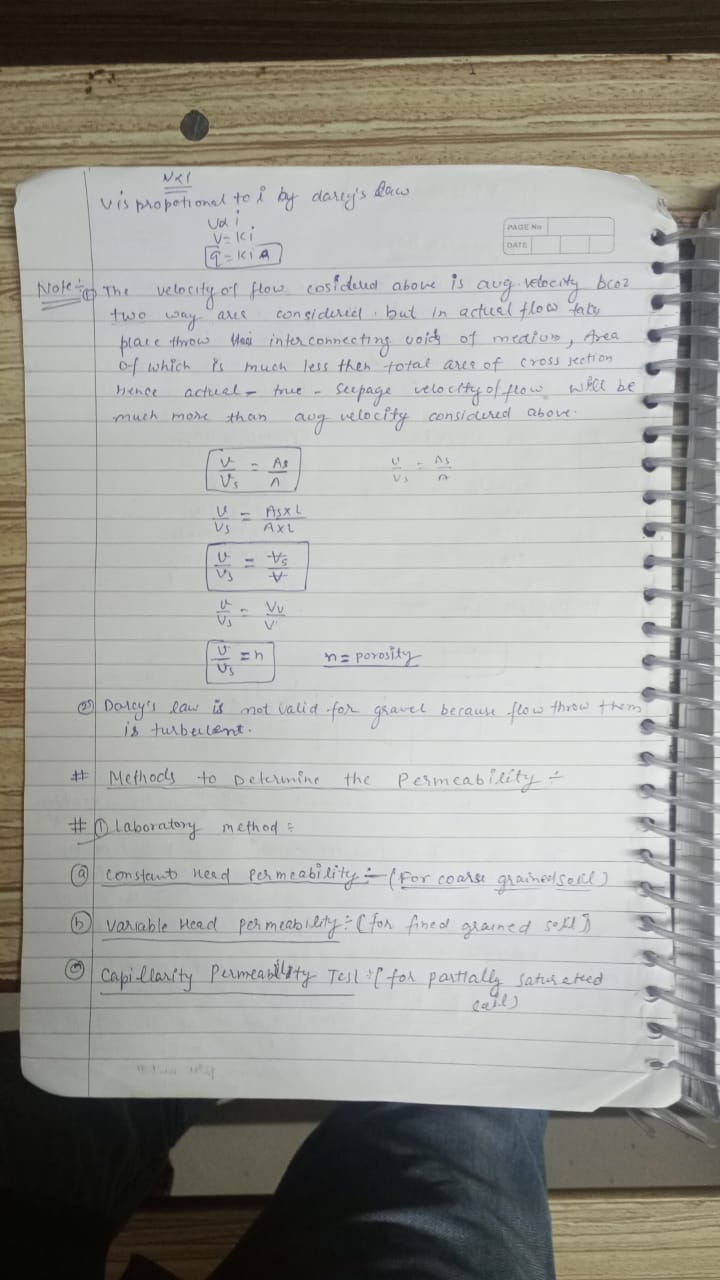 V∝i
V is propotional to i by darcy's law
V∝ i
V = Ki
q = KiA
PAGE No
DATE
Note:- ① The velocity of flow cosidered above is avg. velocity bcoz
two way area considered. but in actual flow take
place throw interconnecting voids of medium, Area
of which is much less then total area of cross section
Hence actual - true - Seepage velocity of flow will be
much more than avg velocity considered above.
V/Vs = As/A
V/Vs = As/A
V/Vs = As×L/A×L
V/Vs = Vs/V
V/Vs = Vv/V
V/Vs = n n = porosity
② Darcy's law is not valid for gravel because flow throw them
is turbulent.
# Methods to Determine the Permeability ÷
# ① Laboratory method :
ⓐ Constant Head Permeability ÷ (For coarse grained soil)
ⓑ Variable Head permeability ÷ (for fined grained soil)
ⓒ Capillarity Permeability Test ÷ (for partially saturated
soil)